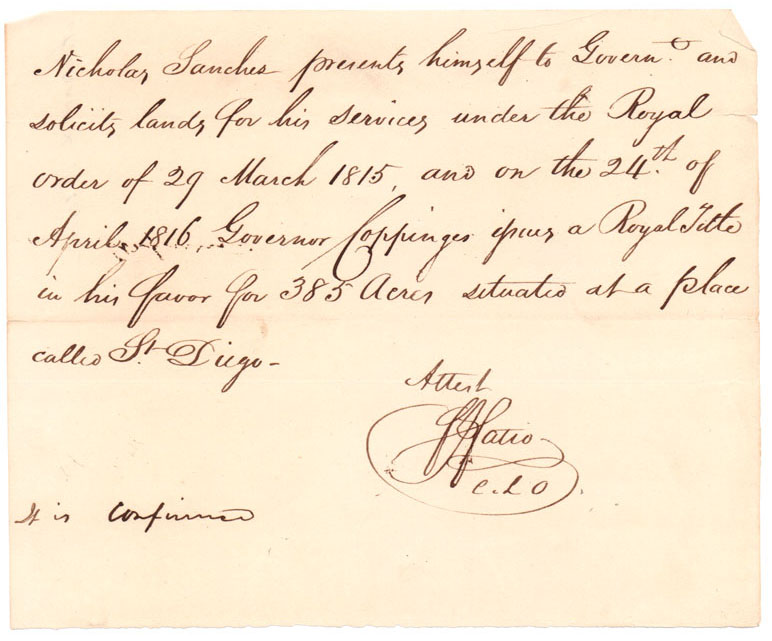 Nicholas Sanches presents himself to Govern.o and
solicits lands for his services under the Royal
order of 29 March 1815, and on the 24.th of
April 1816, Governor Coppinger issues a Royal Title
in his favor for 385 Acres situated at a place
called St. Diego-
Attest
FJFatio
C.L.O.
It is confirmed